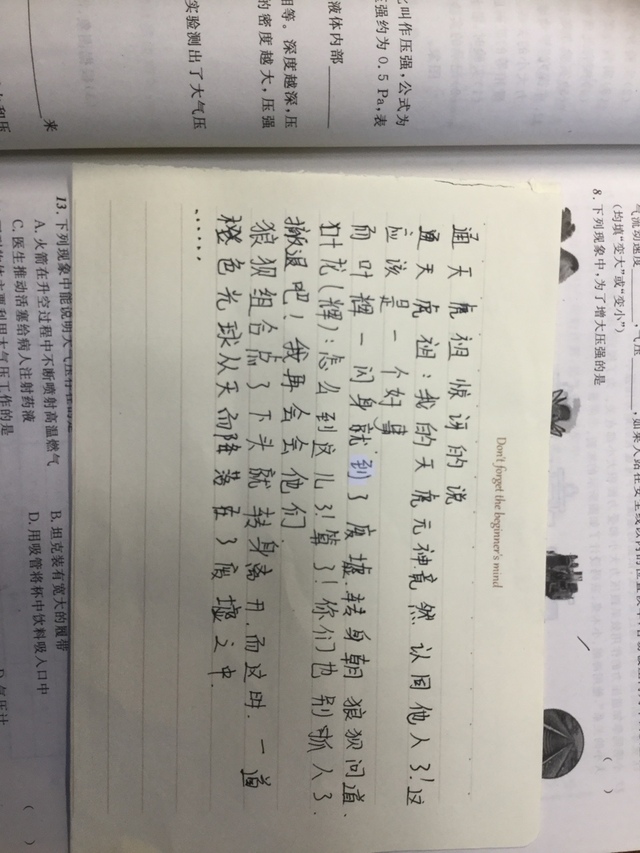 叫作压强，公式为
强约为 0.5 Pa，表
液体内部
相等。深度越深，压
的密度越大，压强
实验测出了大气压
来
气流动速度____，气压____
(均填“变大”或“变小”)
8. 下列现象中，为了增大压强的是 ( )
Don't forget the beginner's mind
通天虎祖惊讶的说
通天虎祖：我的天虎元神竟然认回他人了！这
应该是一个好事
而叶辉一闪身就到了废墟.转身朝狼狈问道.
叶龙(辉)：怎么到这儿了！算了！你们也别抓人了.
撤退吧！我再会会他们.
狼狈组合点了下头就转身离开.而这时.一道
橙色光球从天而降落在了废墟之中.
......
13. 下列现象中能说明大气压存在的是 ( )
A. 火箭在升空过程中不断喷射高温燃气 B. 坦克装有宽大的履带
C. 医生推动活塞给病人注射药液 D. 用吸管将杯中饮料吸入口中